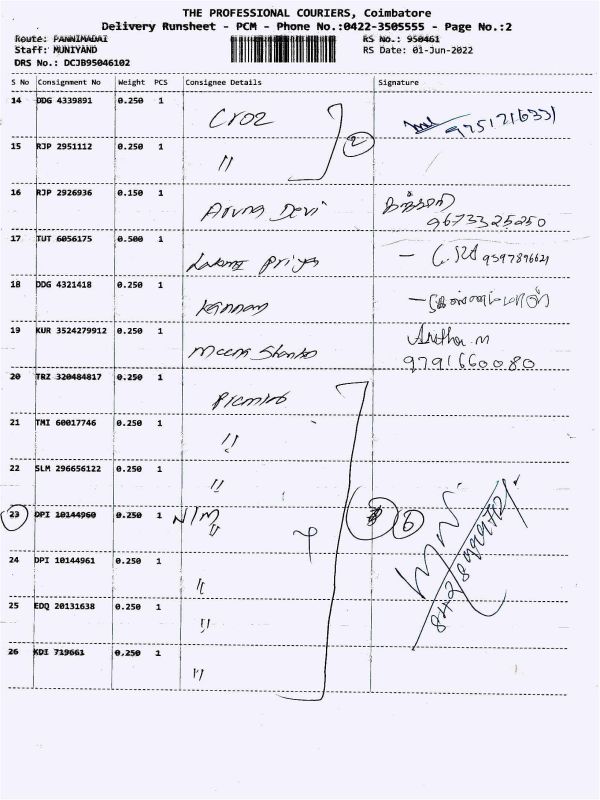 THE PROFESSIONAL COURIERS, Coimbatore
Delivery Runsheet - PCM - Phone No.:0422-3505555 - Page No.:2
Route: PANNIMADAI RS No.: 950461
Staff: MUNIYAND RS Date: 01-Jun-2022
DRS No.: DCJB95046102
S No Consignment No Weight PCS Consignee Details Signature
14 DDG 4339891 0.250 1 Croz 9751216331
15 RJP 2951112 0.250 1 " 2
16 RJP 2926936 0.150 1 Aruna Devi
9673325250
17 TUT 6056175 0.500 1 Lakmi Priya 9597896621
18 DDG 4321418 0.250 1 Kannan
19 KUR 3524279912 0.250 1 Meena Shanka
9791660080
20 TRZ 320484817 0.250 1
21 TMI 60017746 0.250 1 "
22 SLM 296656122 0.250 1 "
23 DPI 10144960 0.250 1 N/M " 6
24 DPI 10144961 0.250 1 "
25 EDQ 20131638 0.250 1 "
26 KDI 719661 0.250 1 "